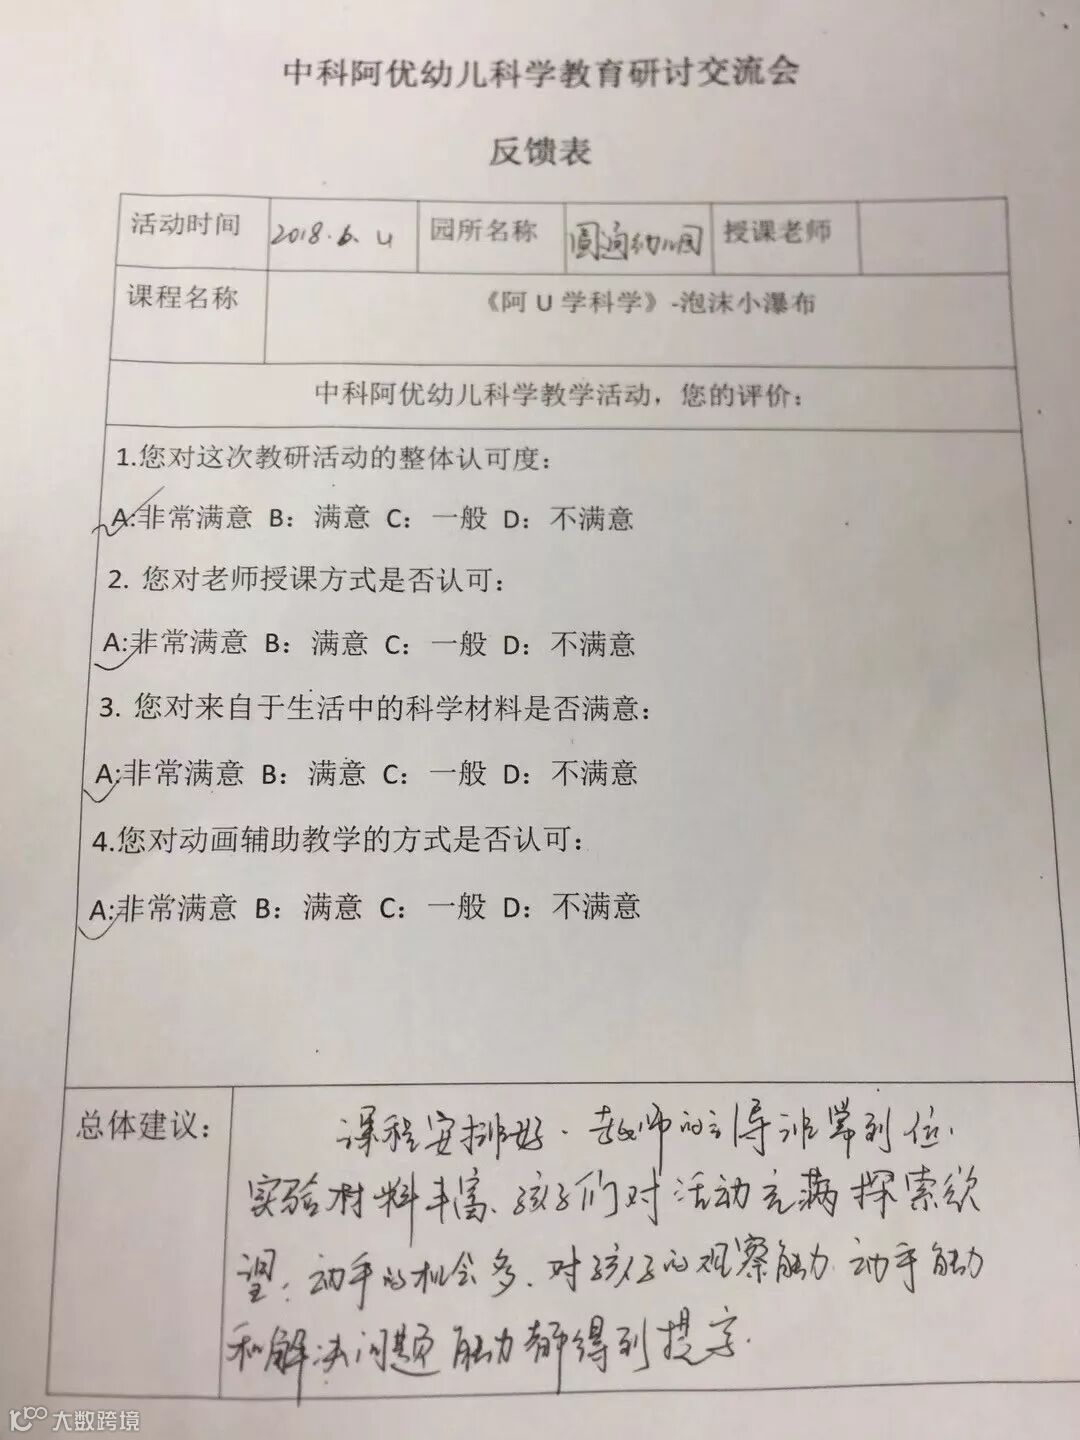 中科阿优幼儿科学教育研讨交流会
反馈表
活动时间 2018.6. 园所名称 圆通幼儿园 授课老师
课程名称 《阿 U 学科学》-泡沫小瀑布
中科阿优幼儿科学教学活动，您的评价：
1.您对这次教研活动的整体认可度：
A:非常满意 B：满意 C：一般 D：不满意
2. 您对老师授课方式是否认可：
A:非常满意 B：满意 C：一般 D：不满意
3. 您对来自于生活中的科学材料是否满意：
A:非常满意 B：满意 C：一般 D：不满意
4.您对动画辅助教学的方式是否认可：
A:非常满意 B：满意 C：一般 D：不满意
总体建议： 课程安排好．教师的引导非常到位．
实验材料丰富、孩子们对活动充满探索欲
望；动手的机会多．对孩子的观察能力 动手能力
和解决问题能力都得到提高．
大数跨境